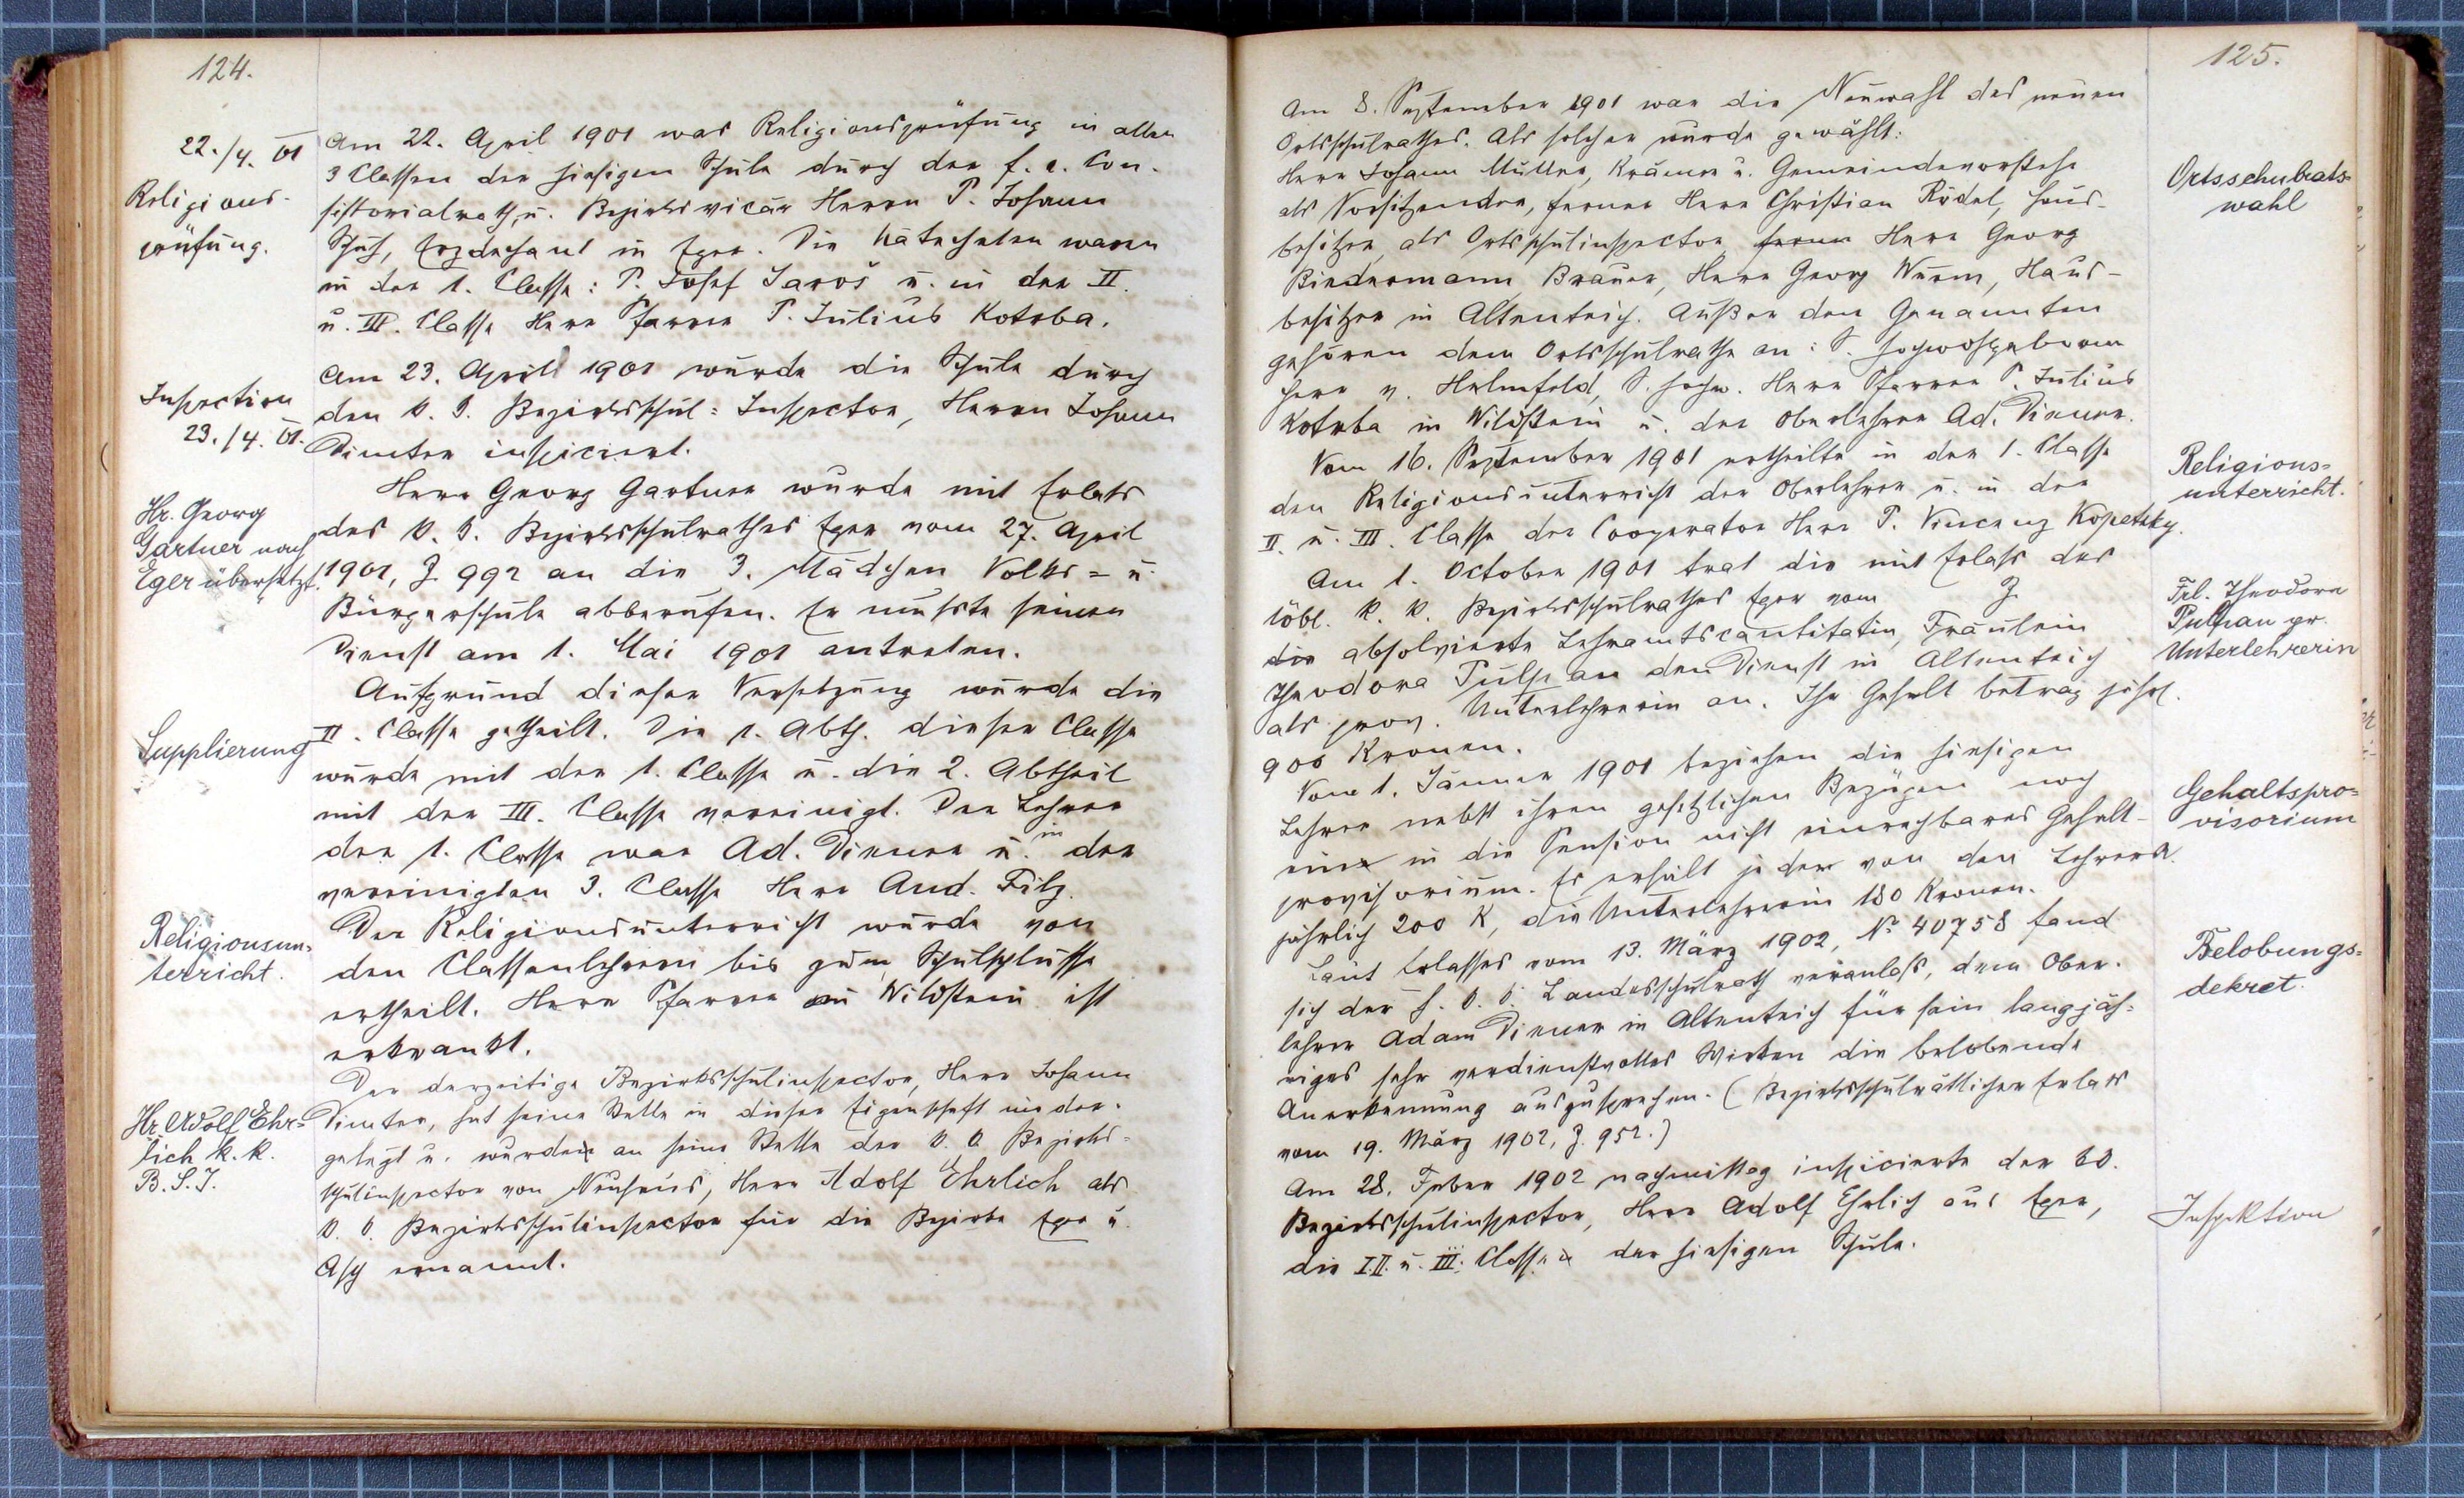 124.
22./4. 01
Religions-
prüfung.
Am 22. April 1901 war Religionsprüfung in allen
3 Classen der hiesigen Schule durch den f. e. Con-
sistorialrath u. Bezirksvicär Herrn P. Johann
Schuh, Erzdechant in Eger. Die Katecheten waren
in der 1. Classe: P. Josef Jaroš u. in der II.
u. III. Classe Herr Pfarrer P. Julius Kotrba.
Inspection
23./4. 01.
Am 23. April 1901 wurde die Schule durch
den k. k. Bezirksschul=Inspector, Herrn Johann
Dimter inspiciert.
Hr. Georg
Gartner nach
Eger übersetzt.
Herr Georg Gartner wurde mit Erlass
des k. k. Bezirksschulrathes Eger vom 27. April
1901, Z. 992 an die 3. Mädchen Volks= u.
Bürgerschule abberufen. Er musste seinen
Dienst am 1. Mai 1901 antreten.
Supplierung
Aufgrund dieser Versetzung wurde die
II. Classe getheilt. Die 1. Abth. dieser Classe
wurde mit der 1. Classe u. die 2. Abtheil
mit der III. Classe vereinigt. Der Lehrer
der 1. Classe war Ad. Diener u. in der
vereinigten 3. Classe Herr And. Filz.
Religionsun=
terricht.
Der Religionsunterricht wurde von
den Classenlehrern bis zum Schulschlusse
ertheilt. Herr Pfarrer in Wildstein ist
erkrankt.
Hr. Adolf Ehr=
lich k. k.
B. S. I.
Der derzeitige Bezirksschulinspector, Herr Johann
Dimter, hat seine Stelle in dieser Eigenschaft nieder-
gelegt u. wurde an seine Stelle der k. k. Bezirks=
schulinspector von Neuhaus, Herr Adolf Ehrlich als
k. k. Bezirksschulinspector für die Bezirke Eger u.
Asch ernannt.
125.
Am 8. September 1901 war die Neuwahl des neuen
Ortsschulrathes. Als solcher wurde gewählt:
Herr Johann Müller, Krämer u. Gemeindevorsteher
als Vorsitzender, ferner Herr Christian Rödel, Haus-
besitzer als Ortsschulinspector ferner Herr Georg
Biedermann, Brauer, Herr Georg Wurm, Haus-
besitzer in Altenteich. Außer den Genannten
gehören dem Ortsschulrathe an: S. Hochwohlgeboren
Herr v. Helmfeld, S. Hochw. Herr Pfarrer P. Julius
Kotrba in Wildstein u. der Oberlehrer Ad. Diener.
Ortsschulrats=
wahl
Vom 16. September 1901 ertheilte in der 1. Classe
den Religionsunterricht der Oberlehrer u. in der
II. u. III. Classe der Cooperator Herr P. Vincenz Kopetzky.
Religions=
unterricht.
Am 1. October 1901 trat die mit Erlass des
löbl. k. k. Bezirksschulrathes Eger vom Z.
die absolvierte Lehramtscantitatin, Fräulein
Theodora Pulpan den Dienst in Altenteich
als prov. Unterlehrerin an. Ihr Gehalt betrag jährl.
900 Kronen.
Frl. Theodora
Pulpan pr.
Unterlehrerin
Vom 1. Jänner 1901 beziehen die hiesigen
Lehrer nebst ihren gesetzlichen Bezügen noch
ein in die Pension nicht einrechbares Gehalt-
provisorium. Es erhält jeder von den Lehrern
jährlich 200 K, die Unterlehrerin 180 Kronen.
Gehaltspro=
visorium
Laut Erlasses vom 13. März 1902, № 40758 fand
sich der h. k. k. Landesschulrath veranlaßt, dem Ober-
lehrer Adam Diener in Altenteich für sein langjäh=
riges sehr verdienstvolles Wirken die belobende
Anerkennung auszusprechen. (Bezirksschulrätlicher Erlass
vom 19. März 1902, Z. 952.)
Belobungs=
dekret.
Am 28. Feber 1902 nachmittag inspicierte der k. k.
Bezirksschulinspector, Herr Adolf Ehrlich aus Eger,
die I. II. u. III. Classe der hiesigen Schule.
Inspektion